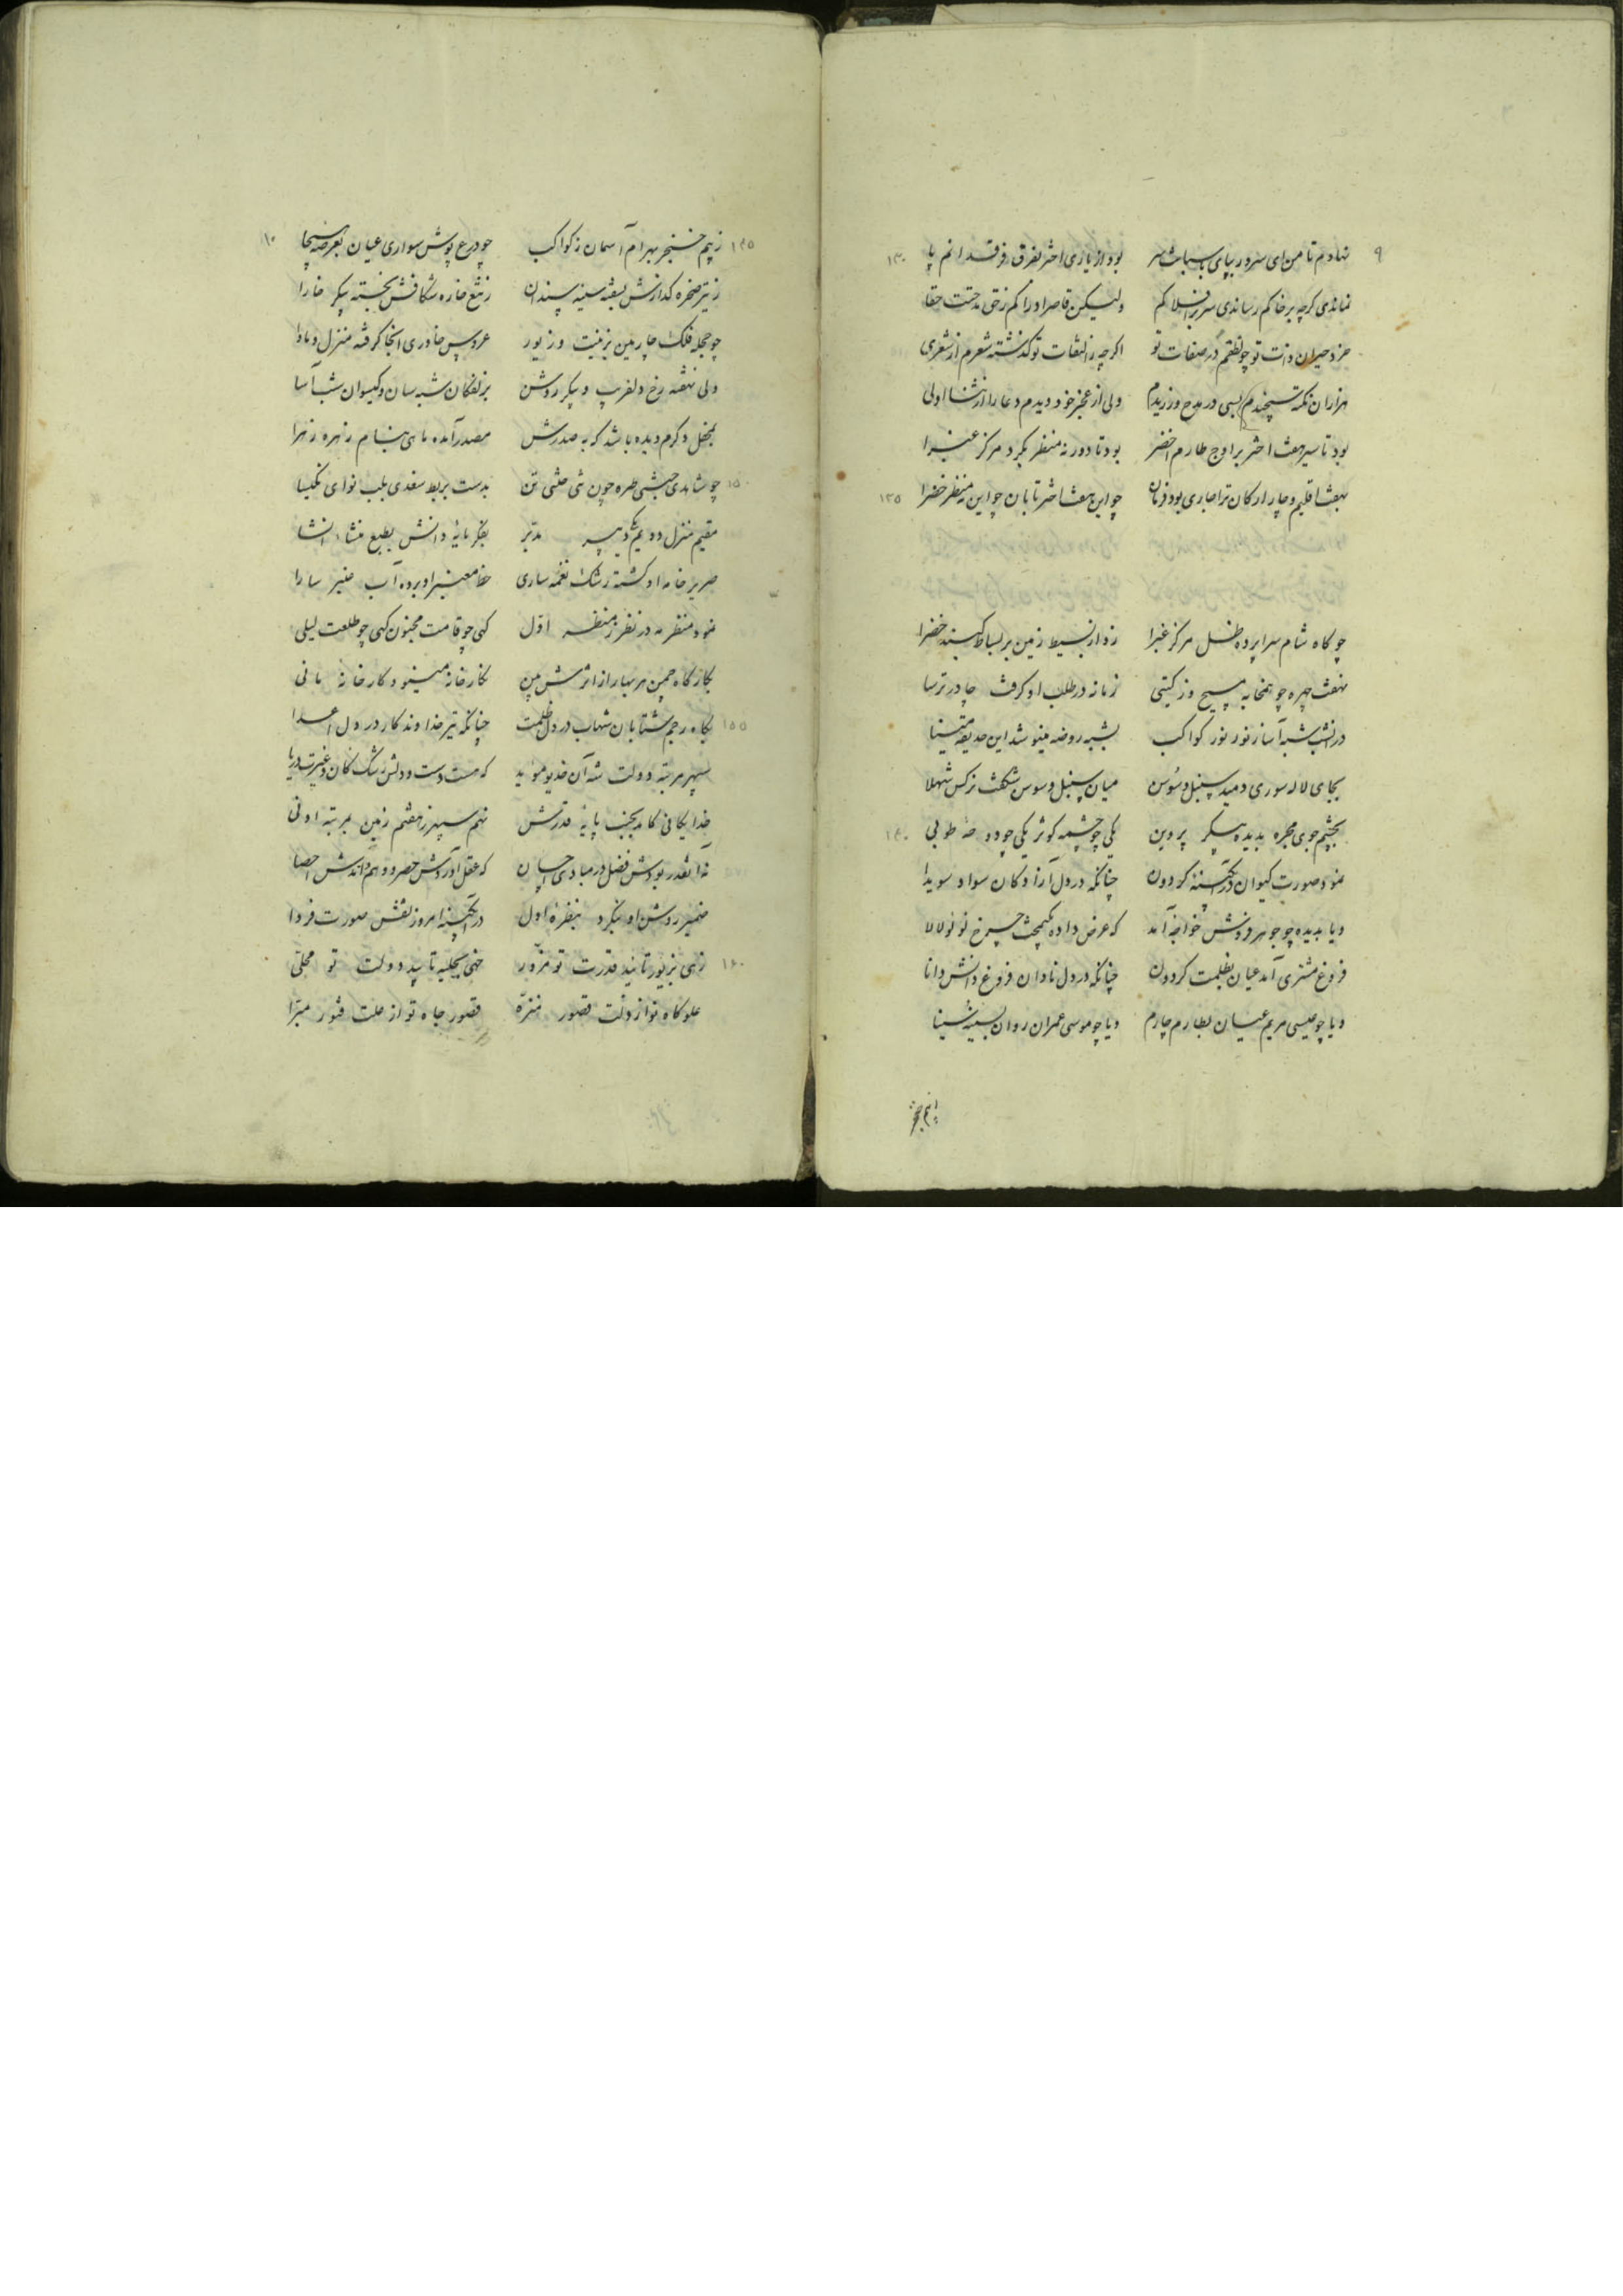 ۹
نهادم تا من ای سرور بپای باسبانت سر بود از یاری اختر بفرق فرقدانم پا ۱۳۰
نماندی کرچه بر خاکم رساندی سر بر افلاکم ولیکن قاصر ادراکم زحق مدحتت حقا
خرد حیران ذات تو چو نطقم در صفات تو اکرچه ز التفات تو کذشته شعرم از شعری
هزاران نکته سنجیدم بسی در مدح ورزیدم ولی از عجز خود دیدم دعا را از ثنا اولی
بود تا سیر هفت اختر بر اوج طارم اخضر بود تا دور نه منظر بکرد مرکز غبرا
بهفت اقلیم و چار ارکان ترا جاری بود فرمان چو این هفت اختر تابان چو این نه منظر خضرا ۱۳۵
چو کاه شام سراپرده ظل مرکز غبرا زد از بسیط زمین بر بساط کنبد خضرا
نهفت چهره چو همخابه مسیح و ز کیتی زمانه در طلب او کرفت چادر ترسا
در انشب شبه آسا ز نور نور کواکب بشبه روضه مینو شد این حدیقه مینا
بجای لاله سوری دمید سنبل و سوسن میان سنبل و سوسن شکفت نرکس شهلا
بچشم جوی مجره بدیده پیکر پروین یکی چو چشمه کوثر یکی چو دوحهٔ طوبی ۱۴۰
نمود صورت کیوان در آبکینه کردون چنانکه در دل آزادکان سواد سویدا
و یا بدیده چو جوهر فروش خواجه آمد که عرض داده بکمخت چرخ لؤلؤ لالا
فروغ مشتری آمد عیان بظلمت کردون چنانکه در دل نادان فروغ دانش دانا
و یا چو عیسی مریم عیان بطارم چارم و یا چو موسی عمران روان بسینه سینا
زبیم خنجر
۱۰
۱۴۵ زبیم خنجر بهرام آسمان ز کواکب چو درع پوش سواری عیان بعرصه هیجا
ز تیر صخره کدازش بسفته سینه سندان ز تیغ خاره شکافش بخسته پیکر خارا
چو حجله فلک چارمین بزینت و زیور عروس خاوری آنجا کرفته منزل و ماوا
ولی نهفته رخ دلفریب و پیکر روشن بزلفکان شبه سان و کیسوان شب آسا
بمحفل دکرم دیده باشد که به صدرش مصدر آمده ماهی بنام زهره زهرا
۱۵۰ چو شاهدی حبشی طره چون مه ختنی تن بدست بربط سغدی بلب نوای نکیسا
مقیم منزل دویم یکی دبیر مدبر بفکر مایهٔ دانش بطبع منشاء انشا
صریر خامه او کشته رشک نغمه ساری خط معنبر او برده آب عنبر سارا
نمود منظر مه در نظر ز منظر اول کهی چو قامت مجنون کهی چو طلعت لیلی
بکارکاه چمن هر بهار از اثرمش مپن نکار خانه مینو و کارخانهٔ مانی
۱۵۵ بکاه رجم شتابان شهاب در دل ظلمت چنانکه تیر خداوند کار در دل اعدا
سپهر مرتبه دولت شه آن خدیو موید که هست دست و دلش رشک کان و غیرت دریا
خدایکانی کامد بجنب پایهٔ قدرش نهم سپهر ز هفتم زمین بمرتبه ادنی
نه آنقدر بودش فضل در مبادی احسان که عقل آردش حصر و وهم داندش احصا
ضمیر روشن او بنکرد بنظرهٔ اول در آبکینه امروز نقش صورت فردا
۱۶۰ زهی بزیور تایید قدرت تو مزور خهی بحلیه تایید دولت تو محلی
علو کاه تو از ذلت قصور منزه قصور جاه تو از علت فتور مبرا